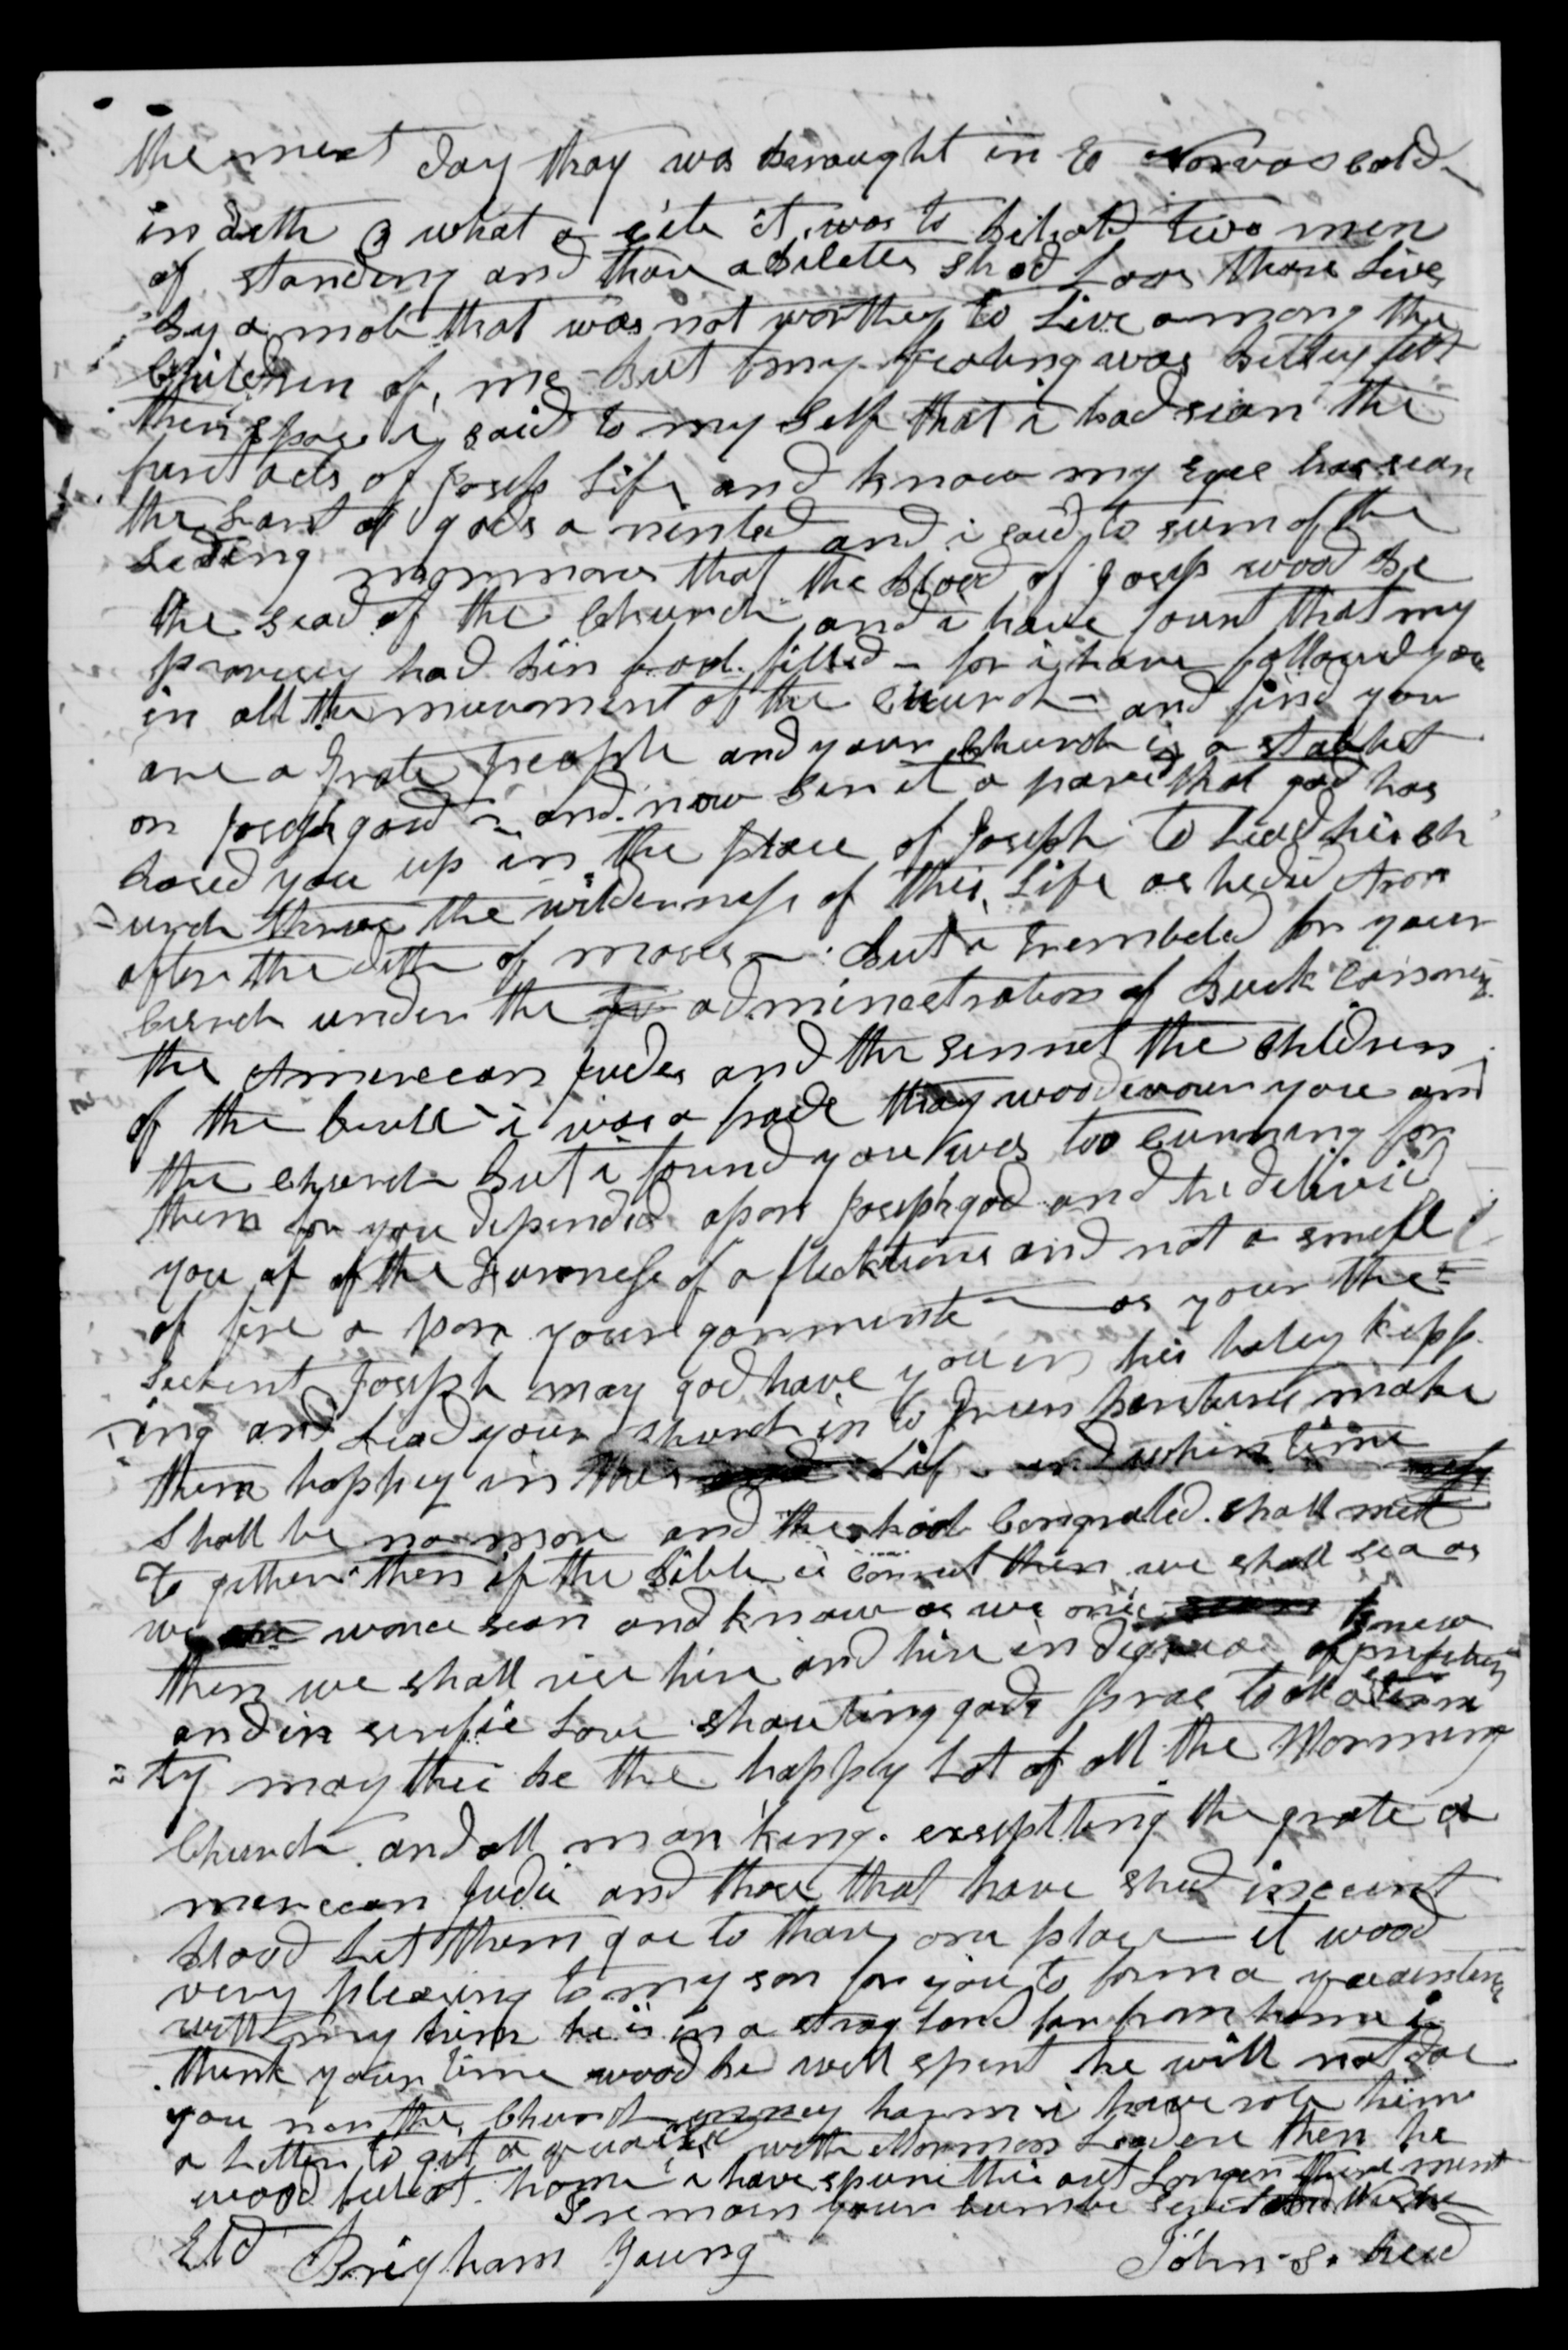 the next day thay was brought in to Norvoo cold
in deth O what a cite it was to behold two men
of standing and thare abiletes shod Loos thare Lives
by a mob that was not worthey to Live among the
Children of me but my fealing was
then i said to my Self that i had sean the
furst acts of Josep Life and know my eyes has sean
the Last of gods a ninted and i said to sum of the
Leding mormones that the blood of Josep wood be
the sead of the Church and i have fount that my
provecy had bin fool filled – for i have follared you
in all the muvement of the Church – and find you
are a grate people and your Church is a
on Joseph god – and now sen it a pared that god has
Rased you up in the place of Joseph to Lead his ch
urch threw the wilderness of this Life as he did Aron
after the deth of moses – But i trembeled for your
Curch under the administration of Buck
the Amerecan Judes and the sennet the children
of the i was a frade thay wood devour you and
the church but i found you was too cunning for
them for you depended apon Joseph god and he delivid
you of of the furnness of aflecktions and not a smell
of fire a pon youre garments – as your the
Joseph may god have you in his holey kepp
ing and Lead your church in to green pasturs make
them happey in this Life – and when time
Shall be no more and the hool Congrated shall meet
to gether then if the bible is correct then we shall sea as
we wonce sean and know as we onc knew
then we shall rise hire and hire in degrees of prefection
and in serefic Love shouting gods pras to all aterni
ty may this be the happy Lot of all the Mormong
Church and all man king. exseptting the grate A
merecan Judis and those that have shed inecent
blood Let them goe to thare one place – it wood
very pleasing to my son for you to form a
with him he is in a strag land far from home i
think your time wood be well spent he will not doe
you nor the Church enney harm i have rote him
a Letter to get a quainted with Mormon Leaders then he
wood feel at home i have spune this out Longer then i ment
I remain your
Eld Brigham Young John S. Reed